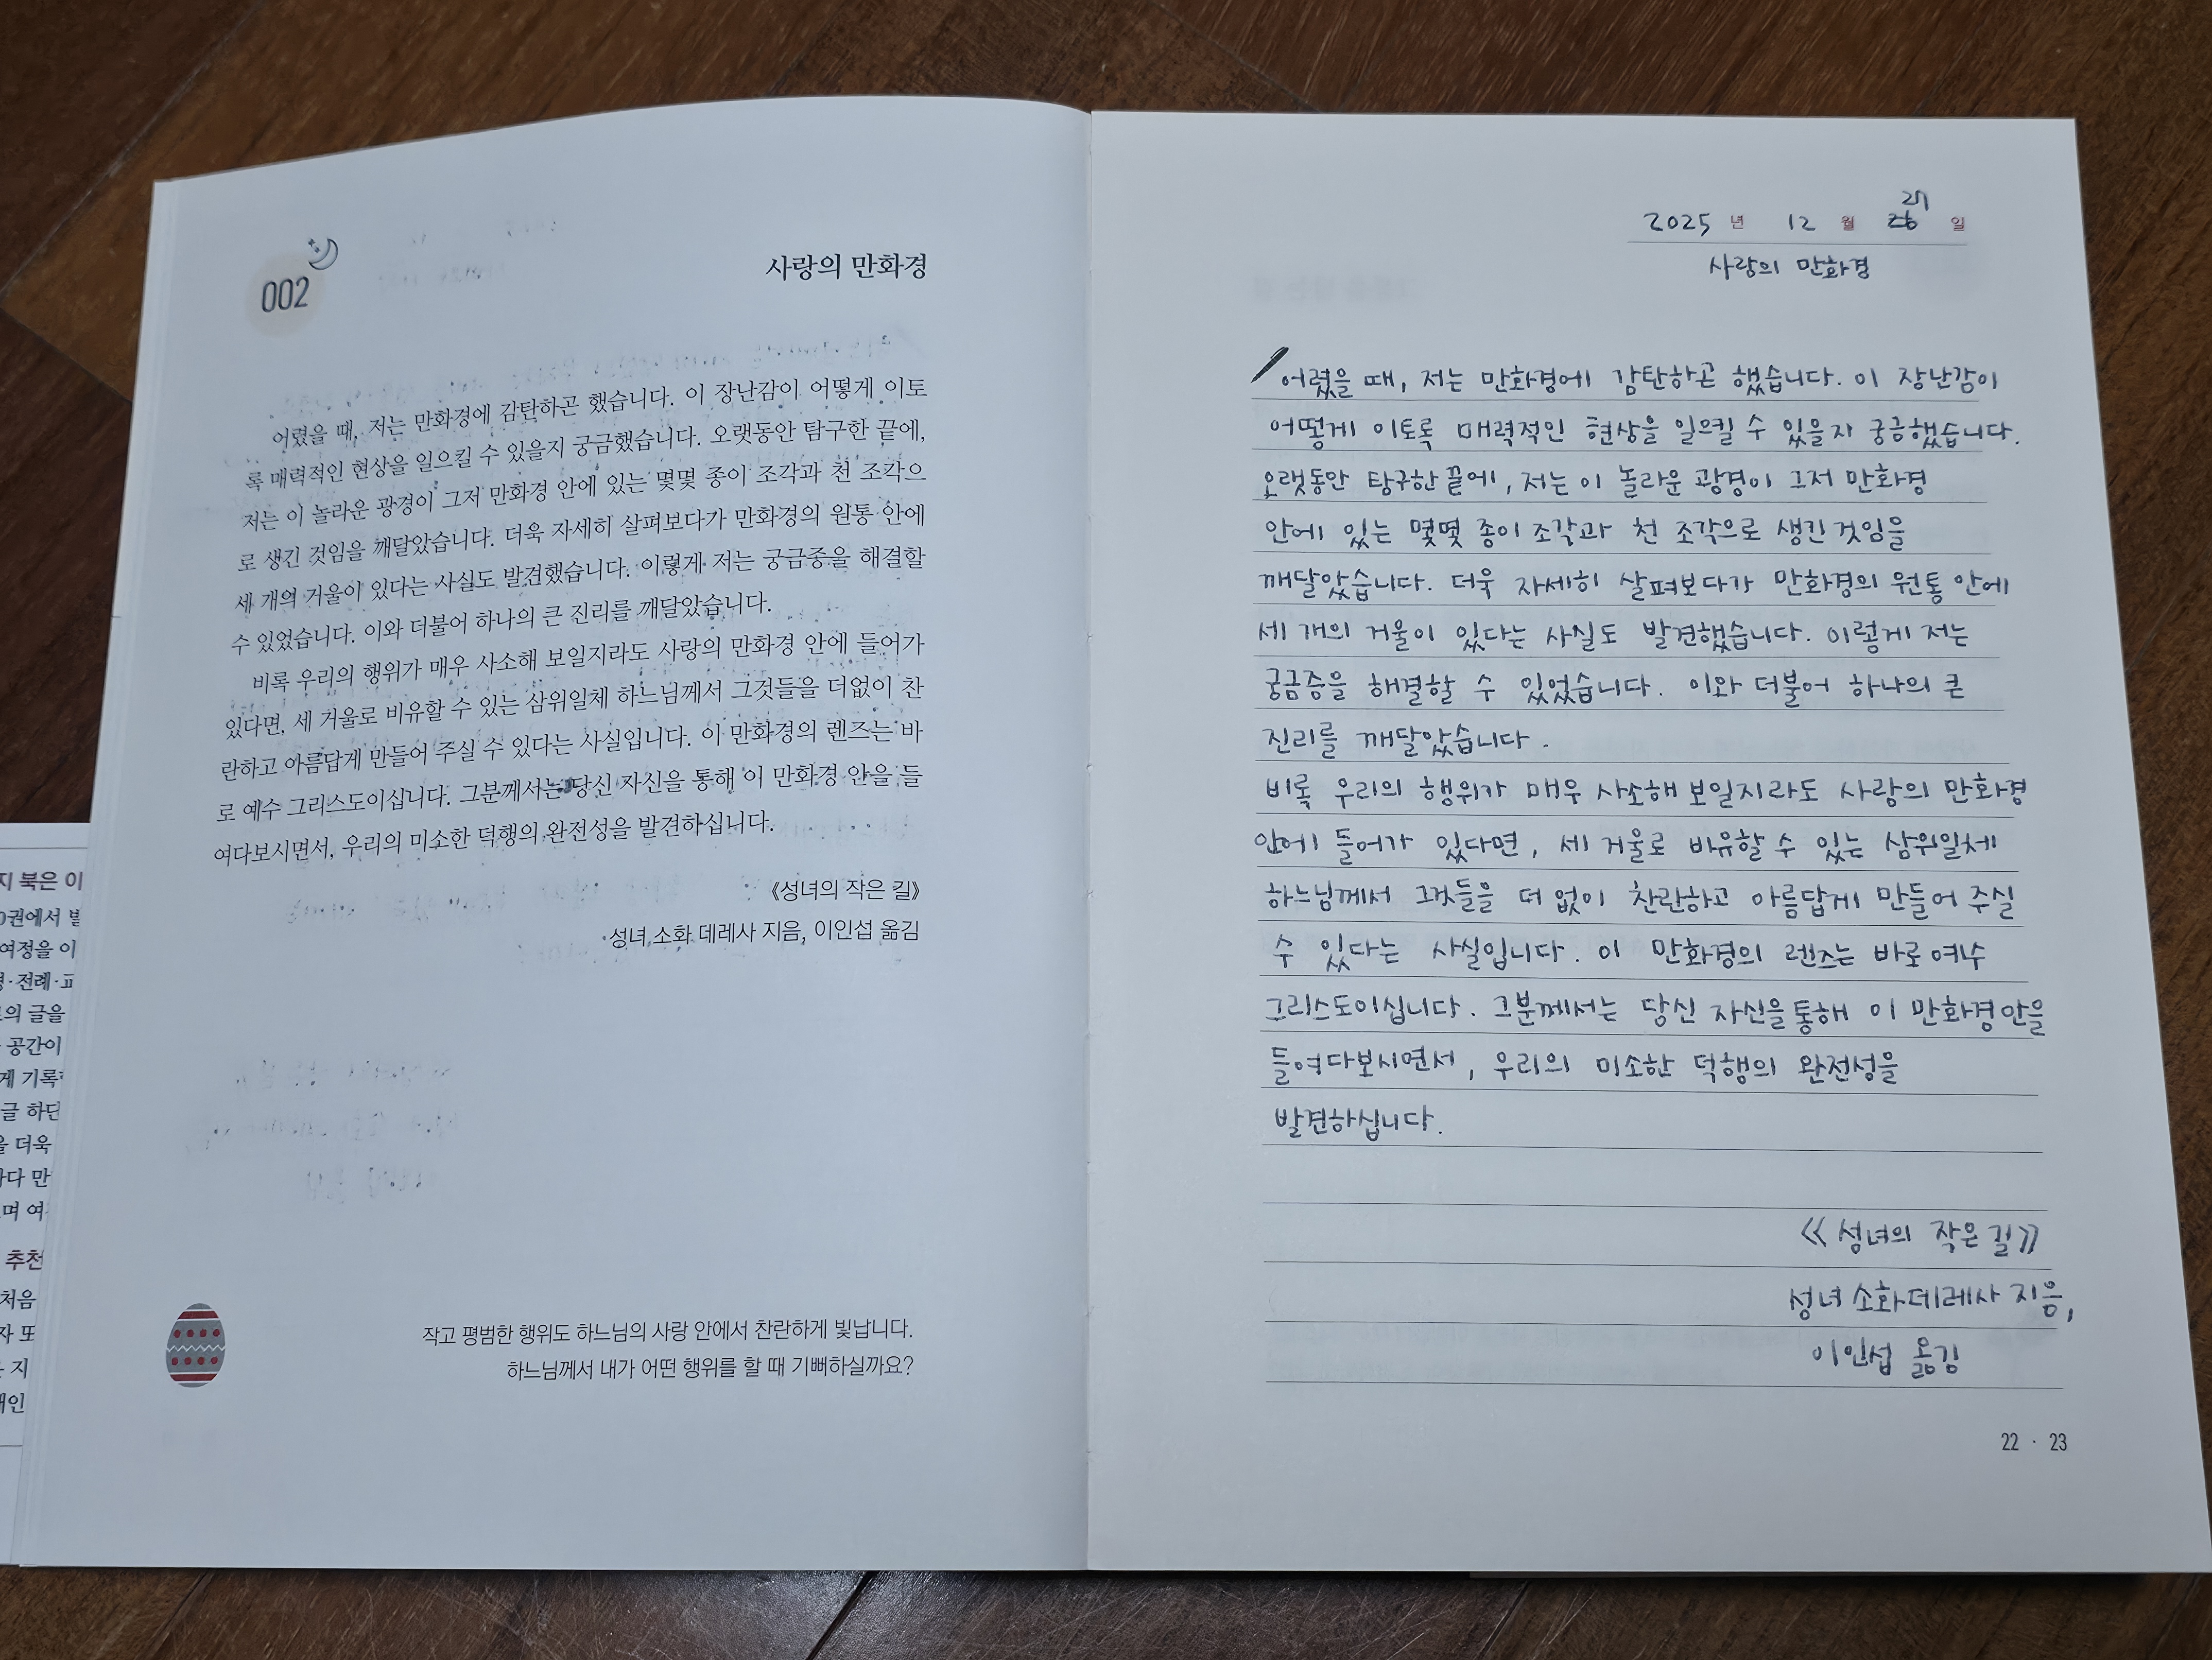 002
사랑의 만화경
어렸을 때, 저는 만화경에 감탄하곤 했습니다. 이 장난감이 어떻게 이토
록 매력적인 현상을 일으킬 수 있을지 궁금했습니다. 오랫동안 탐구한 끝에,
저는 이 놀라운 광경이 그저 만화경 안에 있는 몇몇 종이 조각과 천 조각으
로 생긴 것임을 깨달았습니다. 더욱 자세히 살펴보다가 만화경의 원통 안에
세 개의 거울이 있다는 사실도 발견했습니다. 이렇게 저는 궁금증을 해결할
수 있었습니다. 이와 더불어 하나의 큰 진리를 깨달았습니다.
비록 우리의 행위가 매우 사소해 보일지라도 사랑의 만화경 안에 들어가
있다면, 세 거울로 비유할 수 있는 삼위일체 하느님께서 그것들을 더없이 찬
란하고 아름답게 만들어 주실 수 있다는 사실입니다. 이 만화경의 렌즈는 바
로 예수 그리스도이십니다. 그분께서는 당신 자신을 통해 이 만화경 안을 들
여다보시면서, 우리의 미소한 덕행의 완전성을 발견하십니다.
《성녀의 작은 길》
성녀 소화 데레사 지음, 이인섭 옮김
작고 평범한 행위도 하느님의 사랑 안에서 찬란하게 빛납니다.
하느님께서 내가 어떤 행위를 할 때 기뻐하실까요?
지 북은 이
0권에서 발
여정을 이
전례·교
의 글을
공간이
게 기록
글 하단
을 더욱
다 만
며 여
추천
처음
자 또
지
2025 년 12 월 27 일
사랑의 만화경
어렸을 때, 저는 만화경에 감탄하곤 했습니다. 이 장난감이
어떻게 이토록 매력적인 현상을 일으킬 수 있을지 궁금했습니다.
오랫동안 탐구한 끝에, 저는 이 놀라운 광경이 그저 만화경
안에 있는 몇몇 종이 조각과 천 조각으로 생긴 것임을
깨달았습니다. 더욱 자세히 살펴보다가 만화경의 원통 안에
세 개의 거울이 있다는 사실도 발견했습니다. 이렇게 저는
궁금증을 해결할 수 있었습니다. 이와 더불어 하나의 큰
진리를 깨달았습니다.
비록 우리의 행위가 매우 사소해 보일지라도 사랑의 만화경
안에 들어가 있다면, 세 거울로 비유할 수 있는 삼위일체
하느님께서 그것들을 더 없이 찬란하고 아름답게 만들어 주실
수 있다는 사실입니다. 이 만화경의 렌즈는 바로 예수
그리스도이십니다. 그분께서는 당신 자신을 통해 이 만화경 안을
들여다보시면서, 우리의 미소한 덕행의 완전성을
발견하십니다.
《성녀의 작은 길》
성녀 소화 데레사 지음,
이인섭 옮김
22 · 23